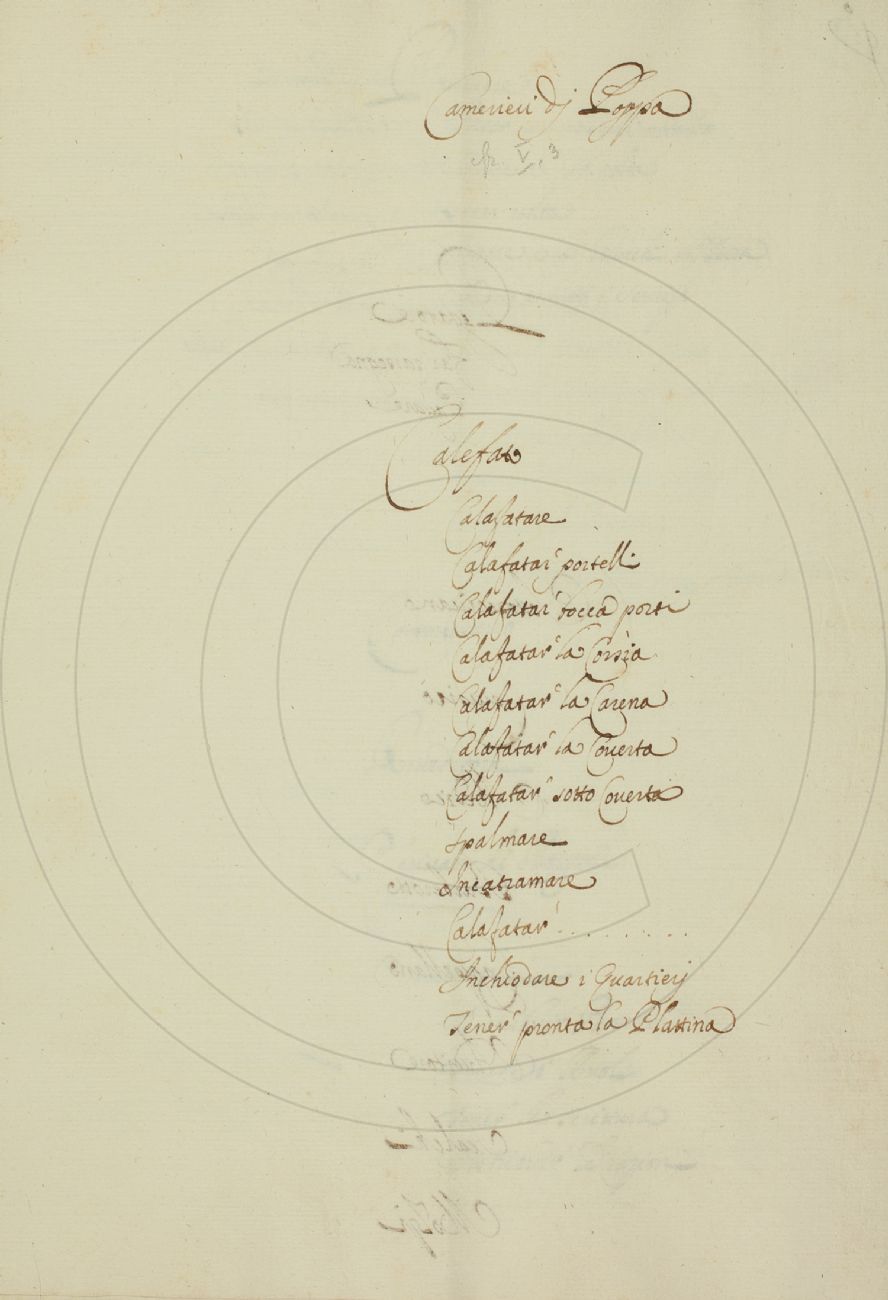 Camerieri dj Poppa
cfr. V, 3
Calefato
Calafatare
Calafatar' portelli
Calafatar' bocca porti
Calafatar' la Corsia
Calafatar' la Carena
Calafatar' la Couerta
Calafatar' sotto Couerta
Spalmare
Incatramare
Calafatar' . . . . . . . .
Inchiodare i Quartierj
Tener' pronta la Plattina